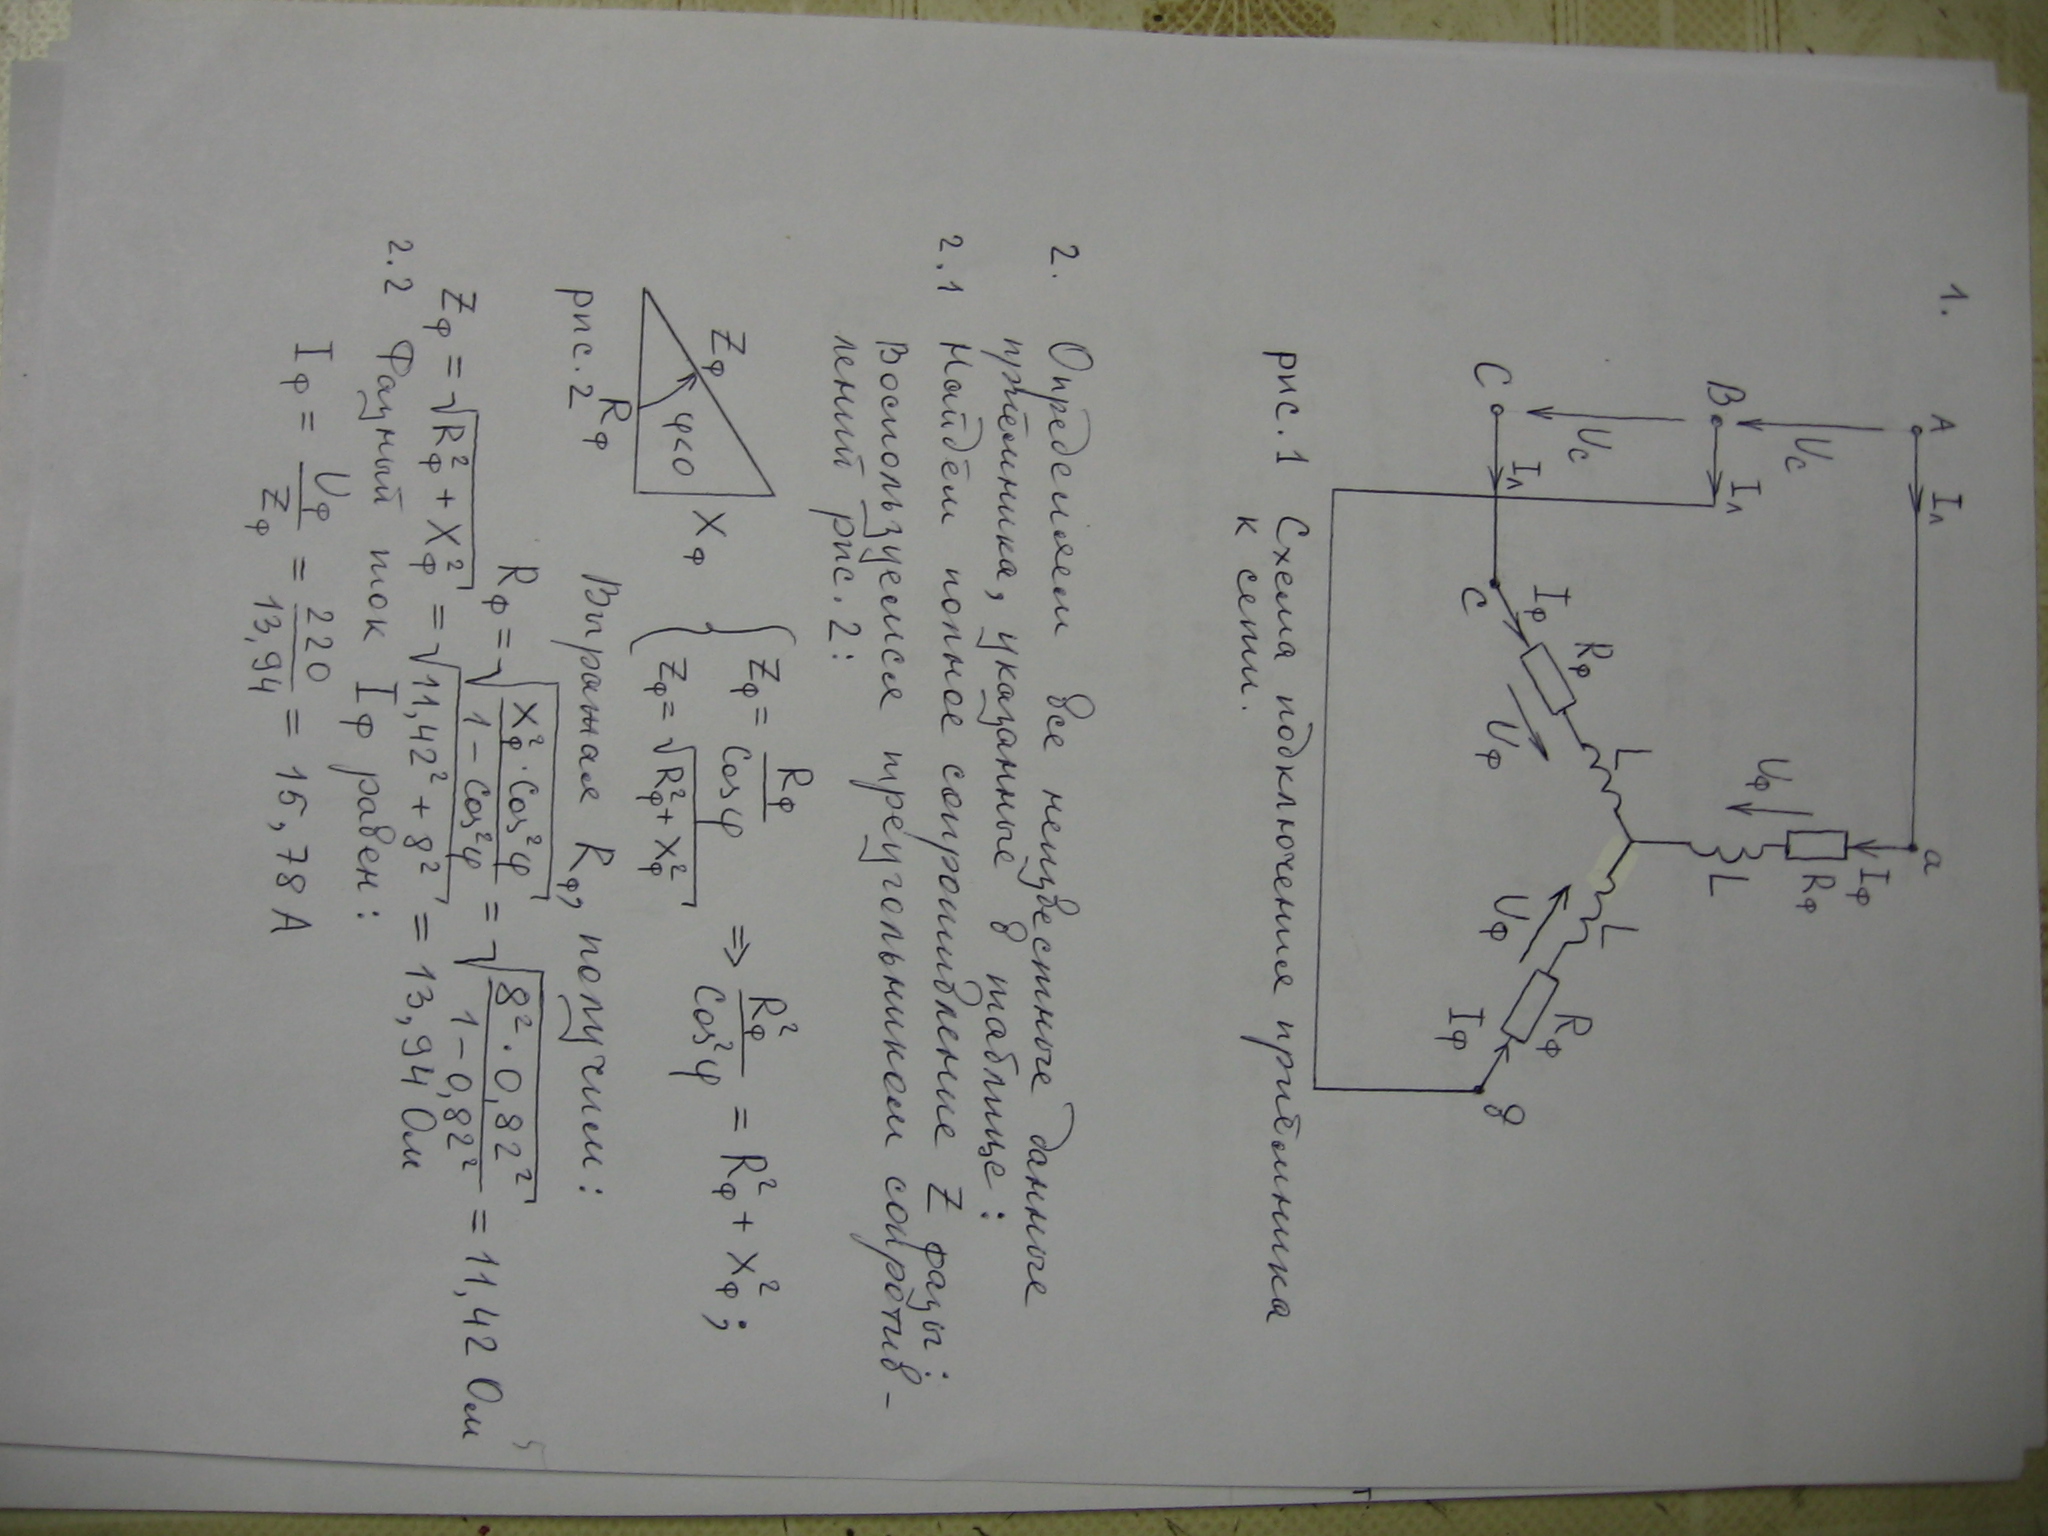 1.
A Iл a
Uс Iф
Uф Rф
L
B Iл
Uс Rф L L Rф
Iф Uф Uф
C Iл c Iф в
рис. 1 Схема подключения приёмника
к сети.
2. Определяем все неизвестные данные
приёмника, указанные в таблице:
2.1 Найдём полное сопротивление Z фазы:
Воспользуемся треугольником сопротив-
лений рис. 2:
Zф φ<0 Xф Rф
{ Zф = Rф / Cosφ
{ Zф = √(Rф² + Xф²) ⇒ Rф² / Cos²φ = Rф² + Xф² ;
рис. 2 Выражая Rф, получим:
Rф = √(Xф² · Cos²φ / 1 - Cos²φ) = √(8² · 0,82² / 1 - 0,82²) = 11,42 Ом
Zф = √(Rф² + Xф²) = √(11,42² + 8²) = 13,94 Ом
2.2 Фазный ток Iф равен:
Iф = Uф / Zф = 220 / 13,94 = 15,78 А